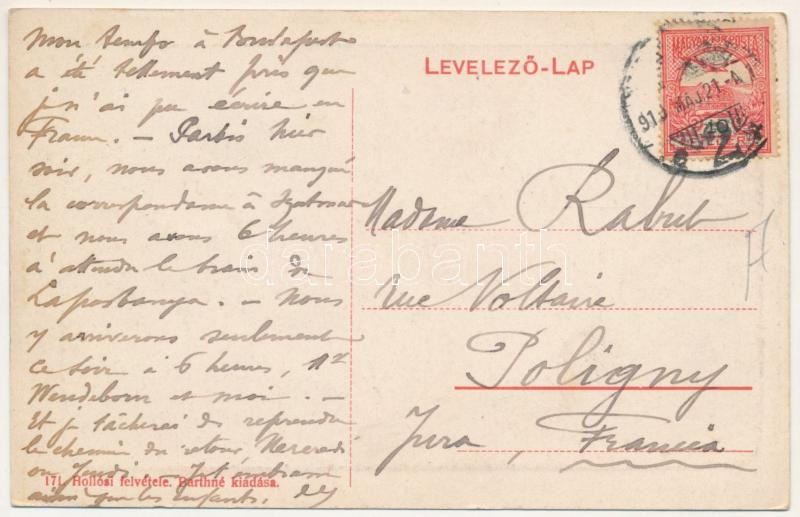 Mon temps à Budapest
a été tellement pris que
je n'ai pu écrire en
France. — Partis hier
soir, nous avons manqué
la correspondance à
et nous avons 6 heures
à attendre le train de
Laposbanya. — Nous
y arriverons seulement
ce soir à 6 heures, Mr
Wendeborn et moi. —
Et je tâcherai de reprendre
le chemin du retour Mercredi
ou Jeudi. — Je t'embrasse
ainsi que les enfants.
171. Hollósi felvétele. Barthné kiadása.
LEVELEZŐ-LAP
MAGYAR KIR. POSTA
913 MAJ. 21
Madame Rabut
rue Voltaire
Poligny
Jura, Francia
darabanth